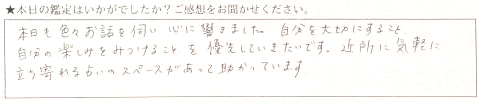 ★本日の鑑定はいかがでしたか？ご感想をお聞かせください。
本日も色々お話を伺い心に響きました。自分を大切にすること、
自分の楽しみをみつけることを優先していきたいです。近所に気軽に
立ち寄れる占いのスペースがあって助かっています